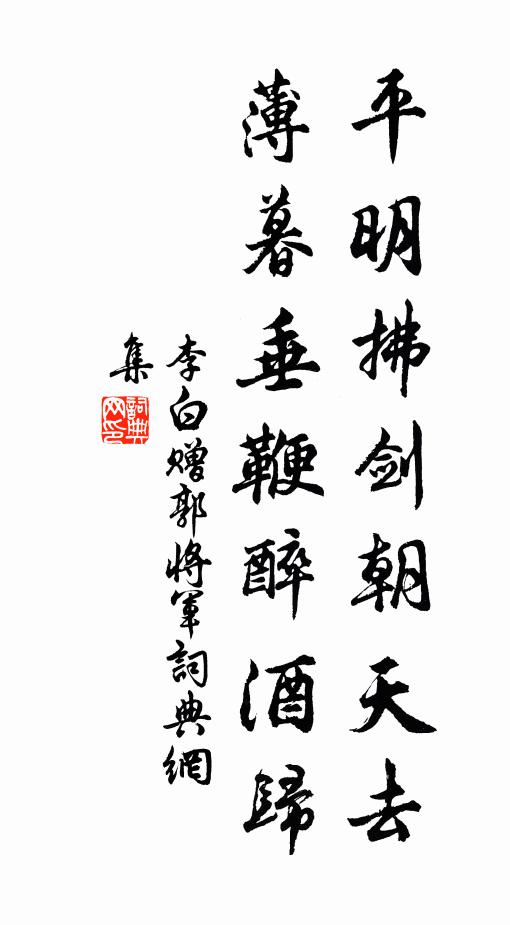 平明拂剑朝天去
薄暮垂鞭醉酒歸
李白赠郭将軍詞典網
集
詞典
网印